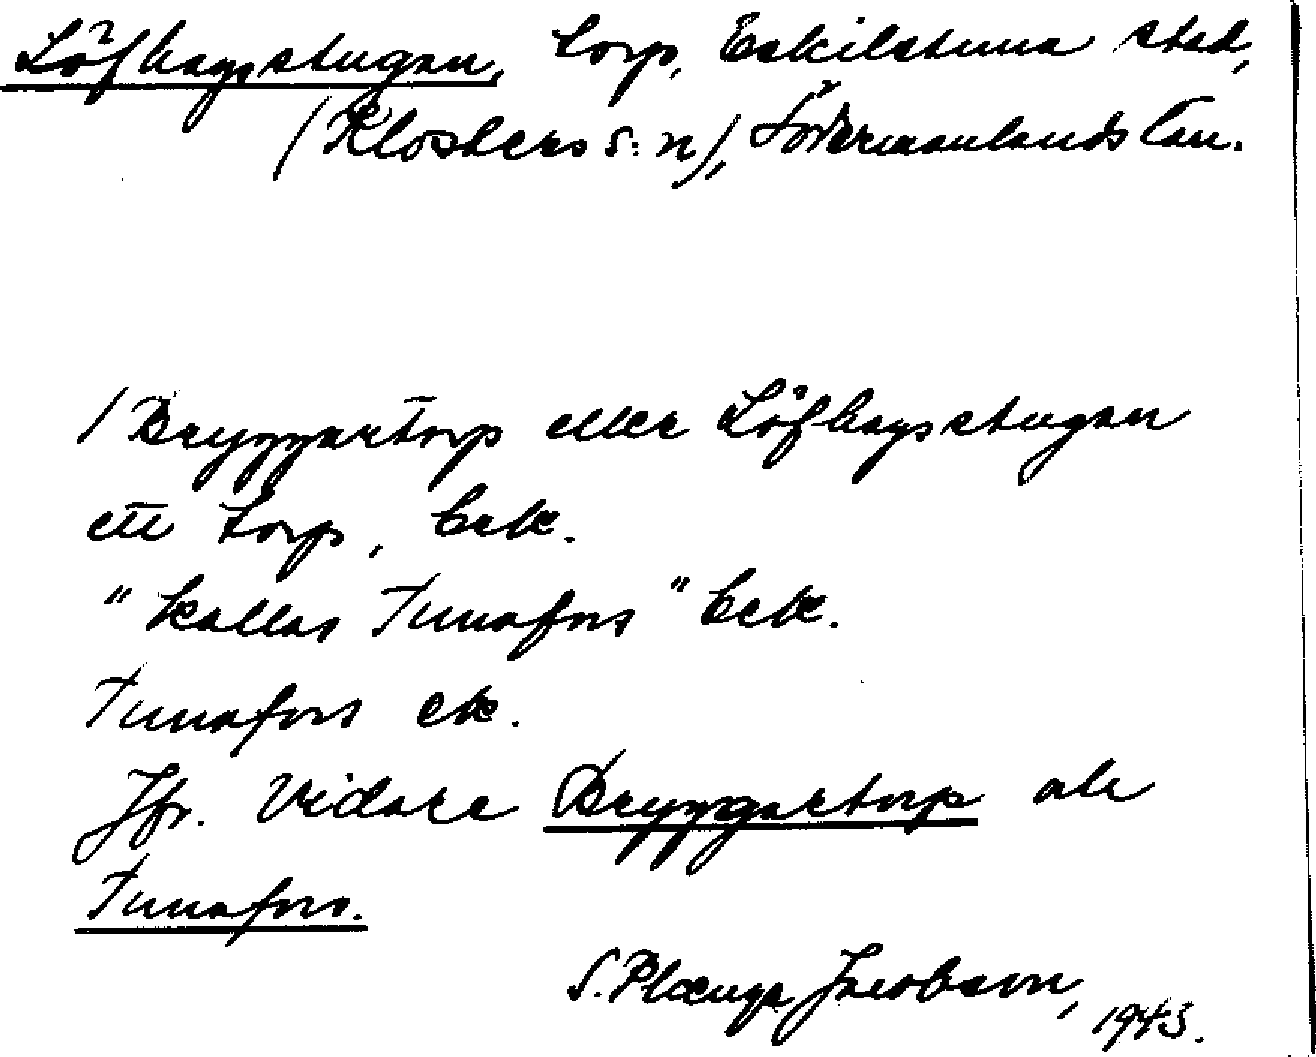 Löfhagsstugan, torp, Eskilstuna stad,
(Klosters s:n), Södermanlands län.
/ Bryggartorp eller Löfhagsstugan
ett torp, Eek.
" kallas Tunafors" Eek.
Tunafors ek.
Jfr. Vidare Bryggartorp ak
Tunafors.
S. Plænge Jacobson,
1943.